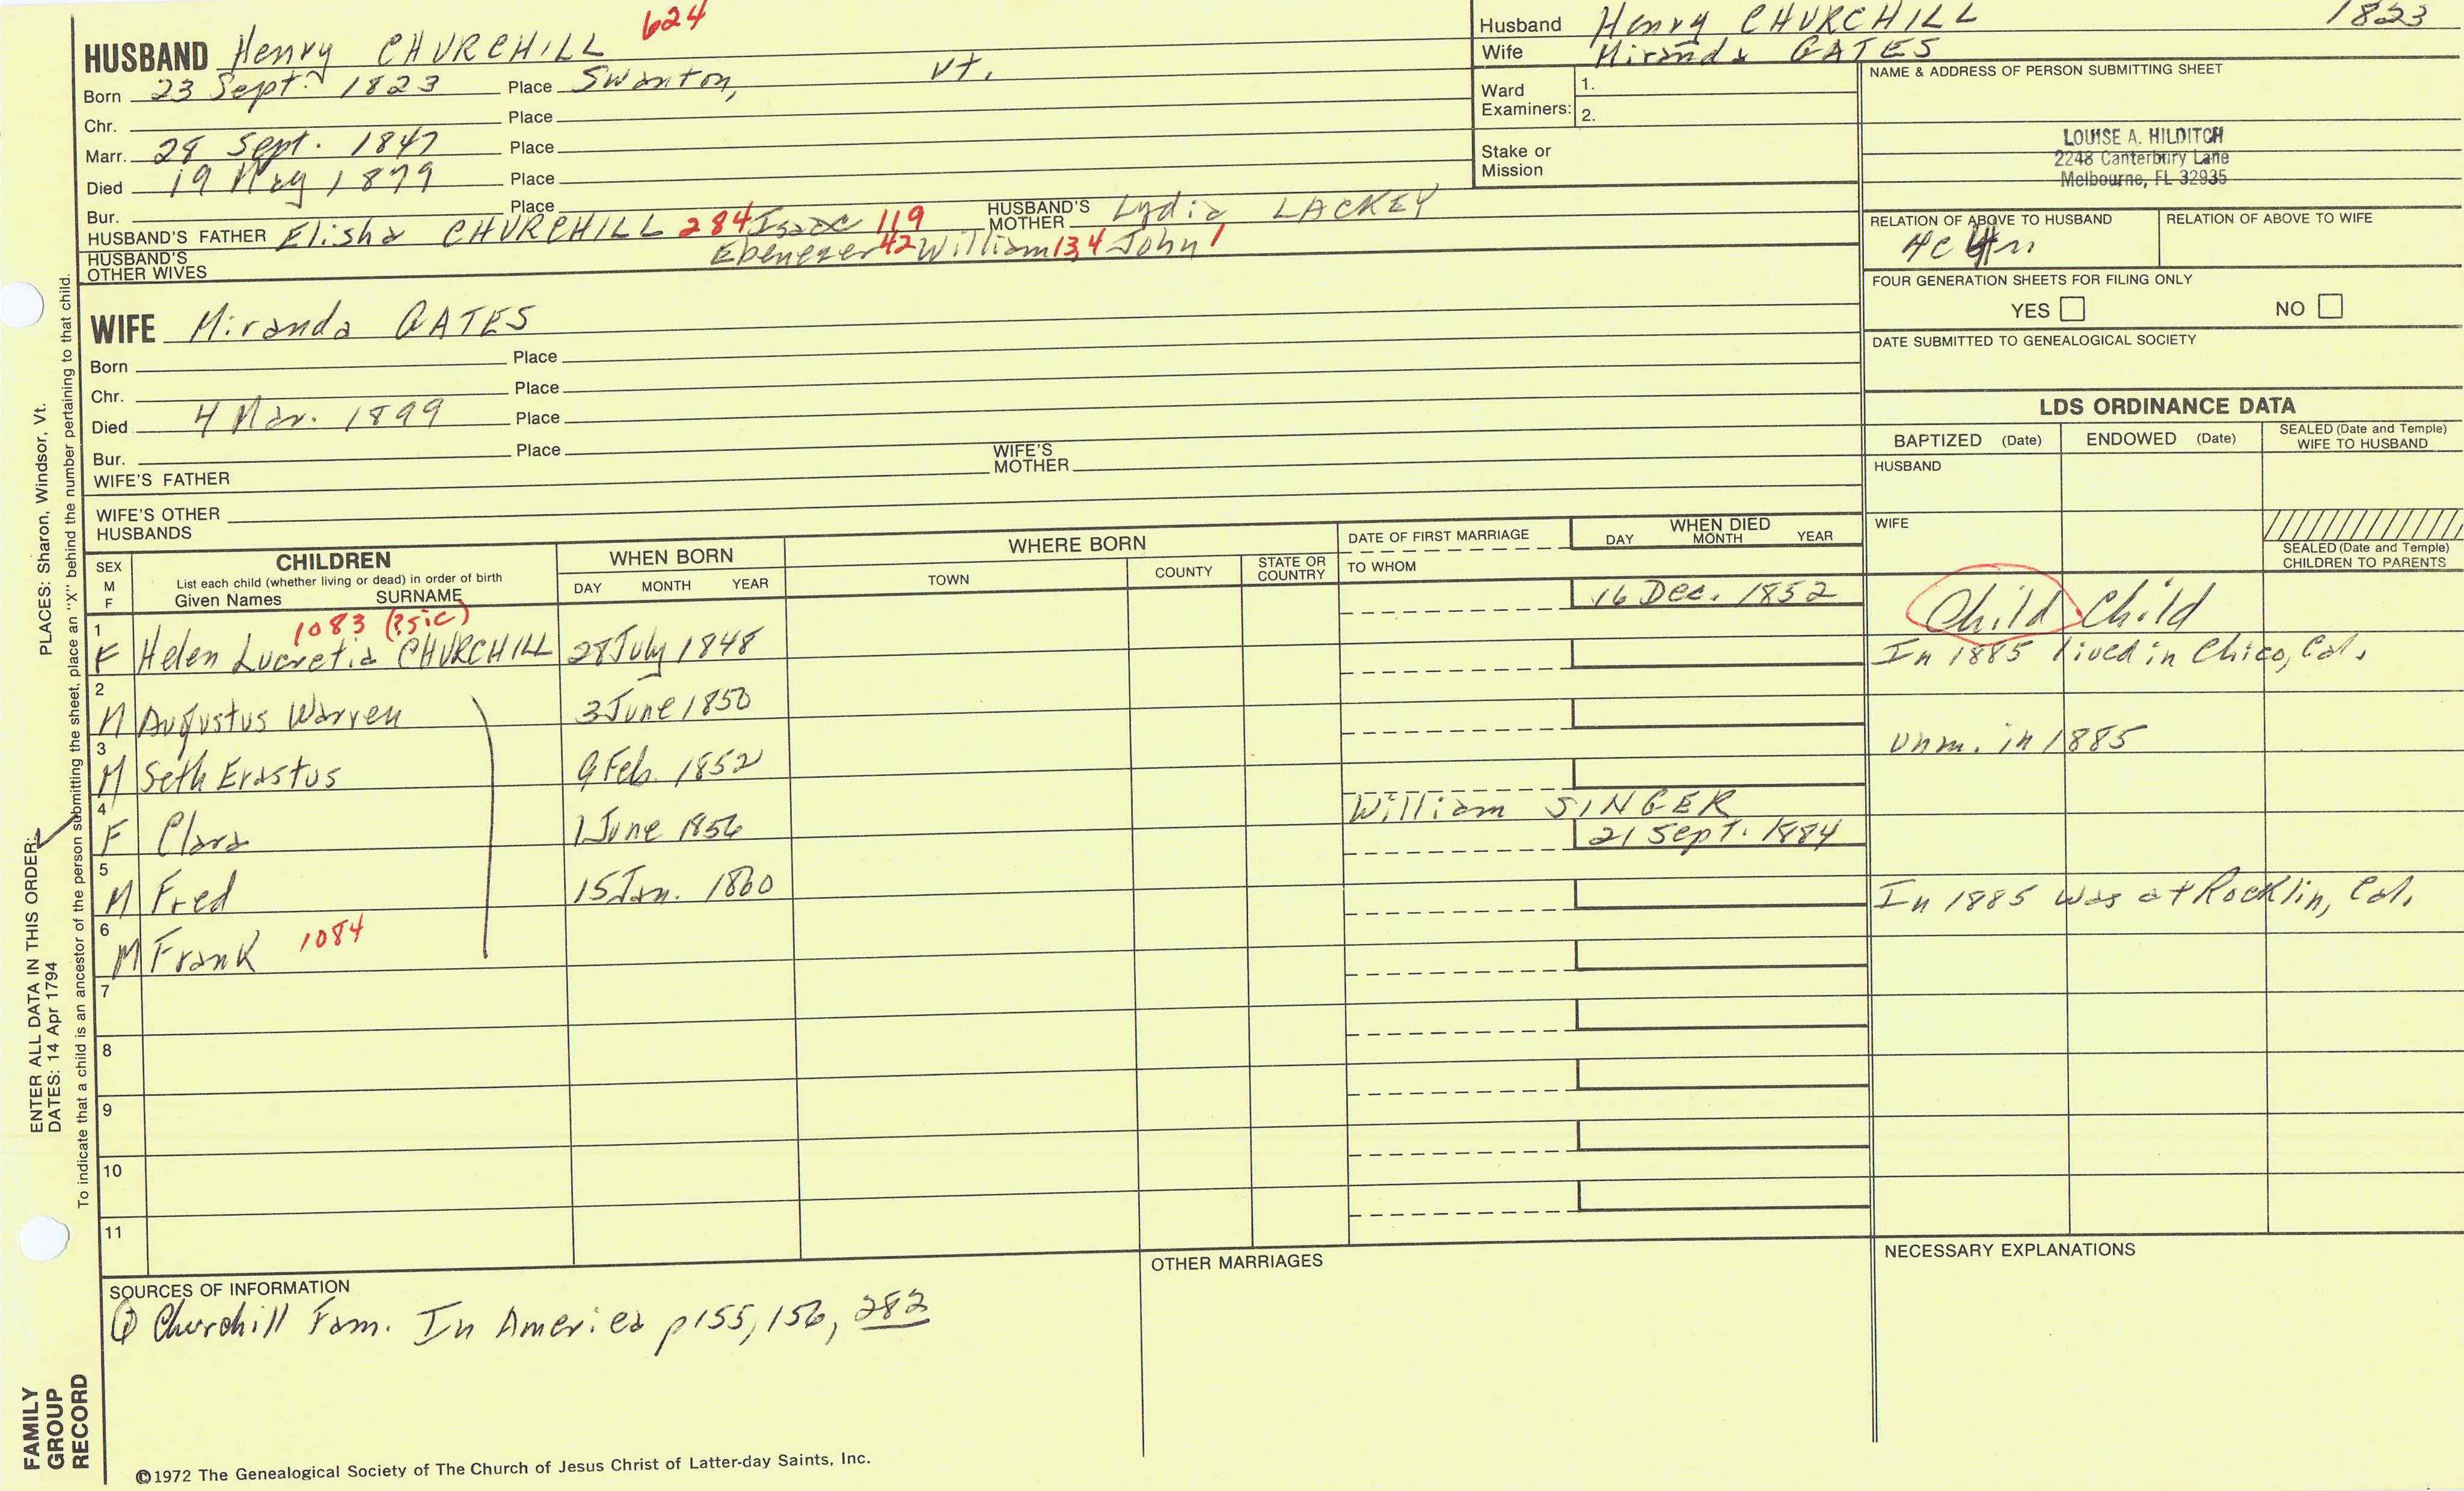 HUSBAND Henry CHURCHILL 624
Born 23 Sept. 1823 Place Swanton, Vt.
Chr. Place
Marr. 28 Sept. 1847 Place
Died 19 May 1879 Place
Bur. Place
HUSBAND'S FATHER Elisha CHURCHILL 284 Isaac 119 HUSBAND'S MOTHER Lydia LACKEY
Ebenezer 42 William 13, 4 John 1
HUSBAND'S OTHER WIVES
WIFE Miranda GATES
Born Place
Chr. Place
Died 4 Mar. 1899 Place
Bur. Place
WIFE'S FATHER WIFE'S MOTHER
WIFE'S OTHER HUSBANDS
Husband Henry CHURCHILL 1823
Wife Miranda GATES
Ward Examiners: 1.
2.
Stake or Mission
NAME & ADDRESS OF PERSON SUBMITTING SHEET
LOUISE A. HILDITCH
2248 Canterbury Lane
Melbourne, FL 32935
RELATION OF ABOVE TO HUSBAND RELATION OF ABOVE TO WIFE
FOUR GENERATION SHEETS FOR FILING ONLY
YES NO
DATE SUBMITTED TO GENEALOGICAL SOCIETY
LDS ORDINANCE DATA
BAPTIZED (Date) ENDOWED (Date) SEALED (Date and Temple) WIFE TO HUSBAND
HUSBAND
WIFE
SEALED (Date and Temple) CHILDREN TO PARENTS
SEX M F CHILDREN WHEN BORN WHERE BORN DATE OF FIRST MARRIAGE WHEN DIED
List each child (whether living or dead) in order of birth
Given Names SURNAME DAY MONTH YEAR TOWN COUNTY STATE OR COUNTRY TO WHOM DAY MONTH YEAR
1083 (?sic)
1 F Helen Lucretia CHURCHILL 28 July 1848 16 Dec. 1852 Child Child
2 M Augustus Warren 3 June 1850 In 1885 lived in Chico, Cal.
3 M Seth Erastus 9 Feb. 1852 Unm. in 1885
4 F Clara 1 June 1856 William SINGER 21 Sept. 1884
5 M Fred 15 Jan. 1860 In 1885 was at Rocklin, Cal.
6 M Frank 1084
7
8
9
10
11
SOURCES OF INFORMATION
① Churchill Fam. In America p155, 156, 282
OTHER MARRIAGES
NECESSARY EXPLANATIONS
©1972 The Genealogical Society of The Church of Jesus Christ of Latter-day Saints, Inc.
FAMILY GROUP RECORD
ENTER ALL DATA IN THIS ORDER:
DATES: 14 Apr 1794 PLACES: Sharon, Windsor, Vt.
To indicate that a child is an ancestor of the person submitting the sheet, place an "X" behind the number pertaining to that child.